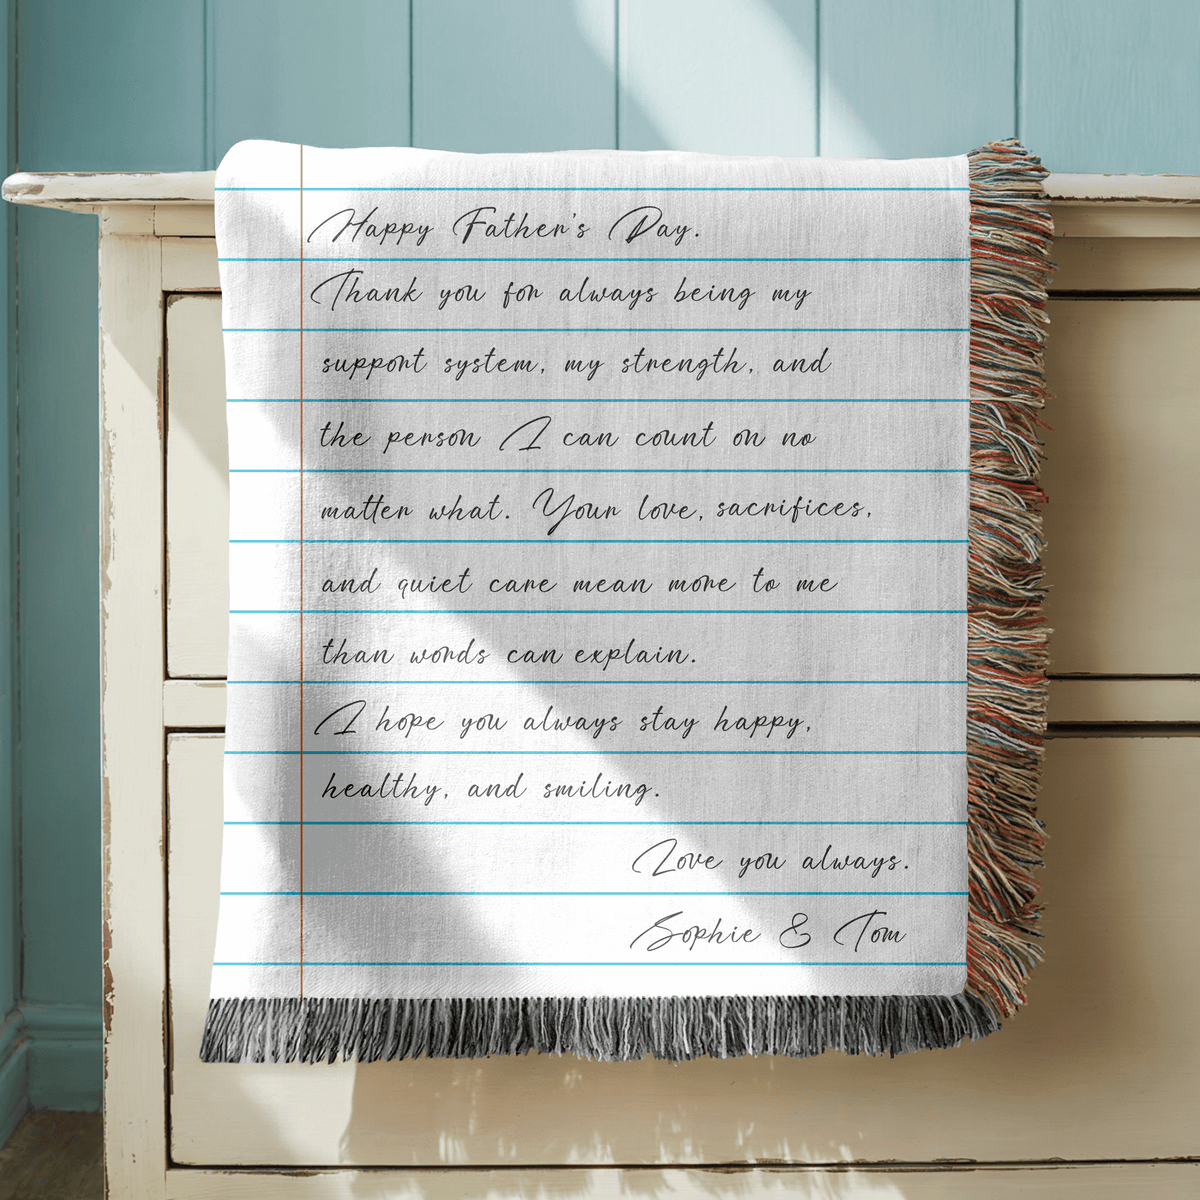 Happy Father's Day.
Thank you for always being my
support system, my strength, and
the person I can count on no
matter what. Your love, sacrifices,
and quiet care mean more to me
than words can explain.
I hope you always stay happy,
healthy, and smiling.
Love you always.
Sophie & Tom